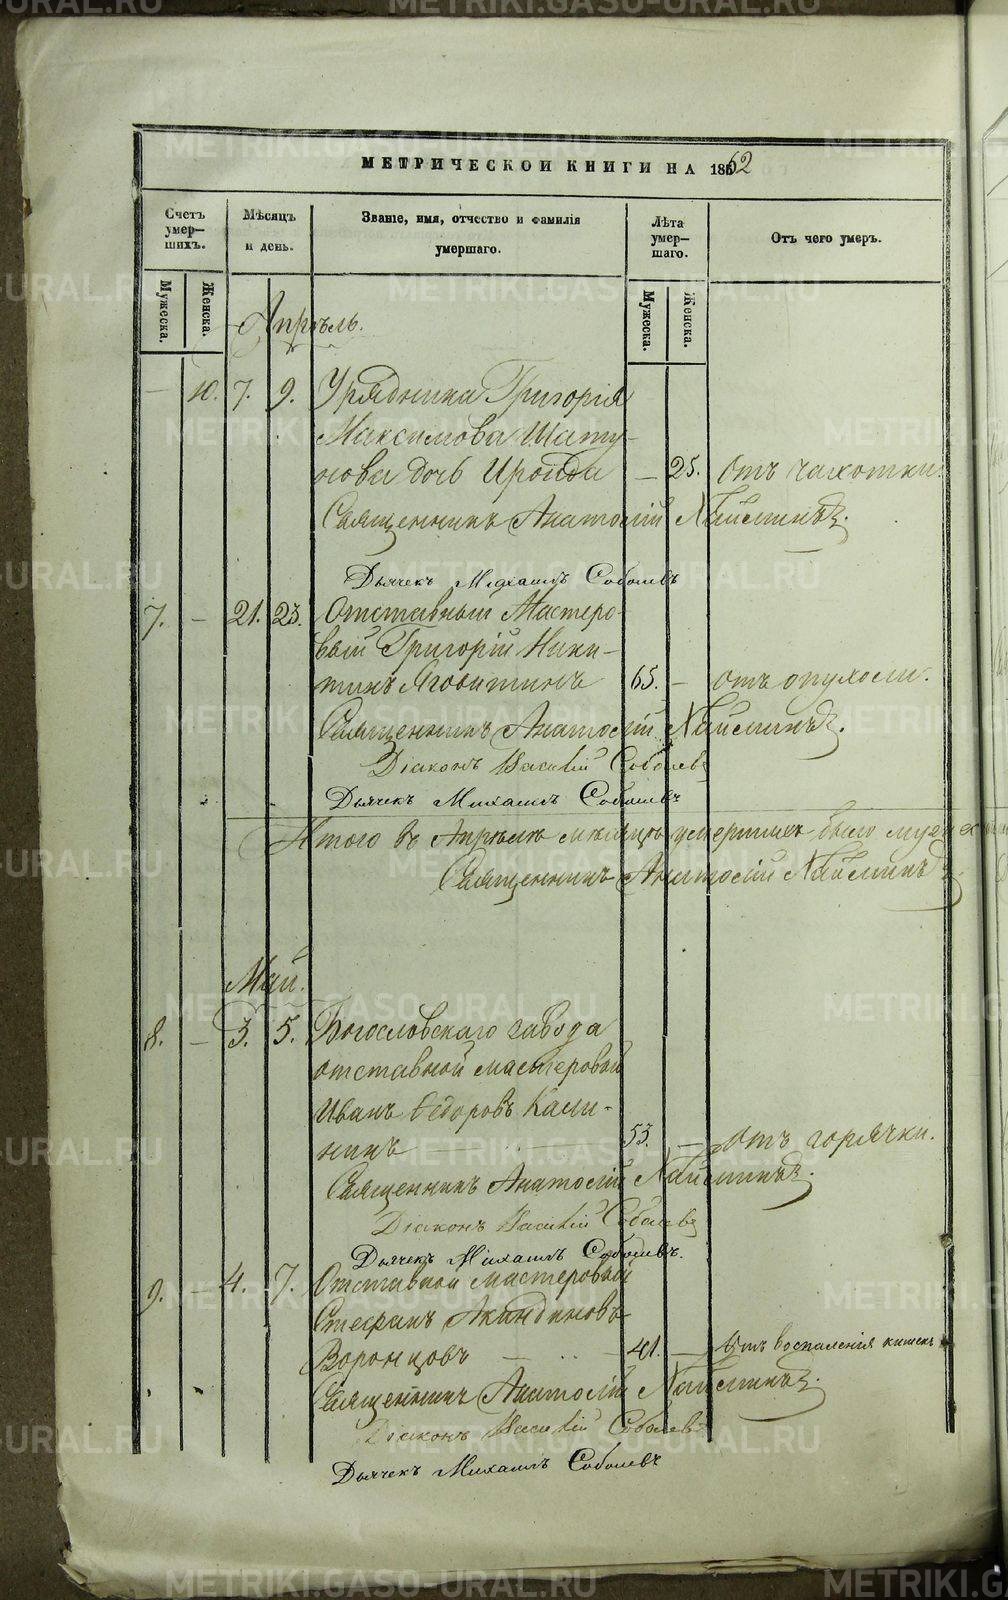 МЕТРИЧЕСКОЙ КНИГИ НА 1862
Счетъ умер-шихъ.
Мѣсяцъ и день.
Званіе, имя, отчество и фамилія умершаго.
Лѣта умер-шаго.
Отъ чего умеръ.
Мужеска.
Женска.
Мужеска.
Женска.
Апрѣль.
— 10. 7. 9. Урядника Григорія
Максимова Шату-
нова дочь Ироида — 25. отъ чахотки.
Священникъ Анатолій
Дьячекъ Михаилъ Соболевъ
7. — 21. 23. Отставный Мастеро-
вый Григорій Ники-
тинъ Яговитинъ 65. — отъ опухоли.
Священникъ Анатолій
Діаконъ Василій Соболевъ
Дьячекъ Михаилъ Соболевъ
Итого въ Апрѣлѣ мѣсяцѣ умершихъ было
Священникъ Анатолій
Май.
8. — 3. 5. Богословскаго завода
отставной мастеровой
Иванъ Ѳедоровъ Кали-
нинъ 53. — отъ горячки.
Священникъ Анатолій
Діаконъ Василій Соболевъ
Дьячекъ Михаилъ Соболевъ.
9. — 4. 7. Отставной мастеровый
Стефанъ Акиндиновъ
Воронцовъ — 41. — Отъ воспаленія кишекъ
Священникъ Анатолій
Діаконъ Василій Соболевъ
Дьячекъ Михаилъ Соболевъ
METRIKI.GASO-URAL.RU